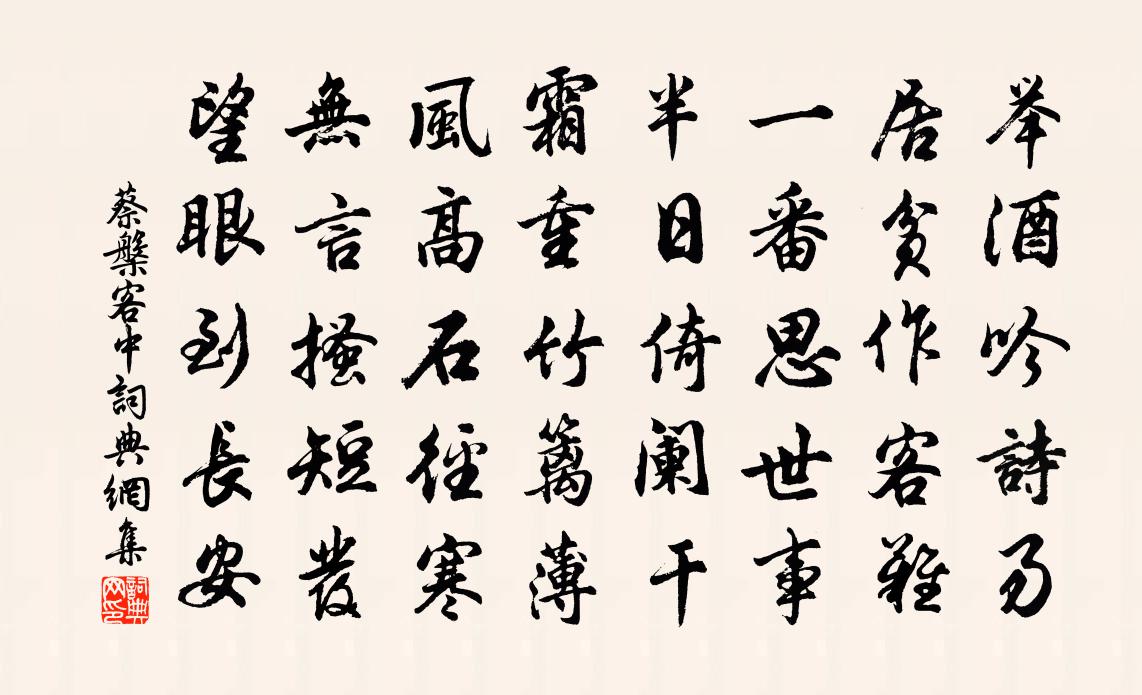 举酒吟詩易
居貧作客難
一番思世事
半日倚闌干
霜重竹籬薄
風高石徑寒
無言搔短發
望眼到長安
蔡槃客中詞典網集
詞典網印